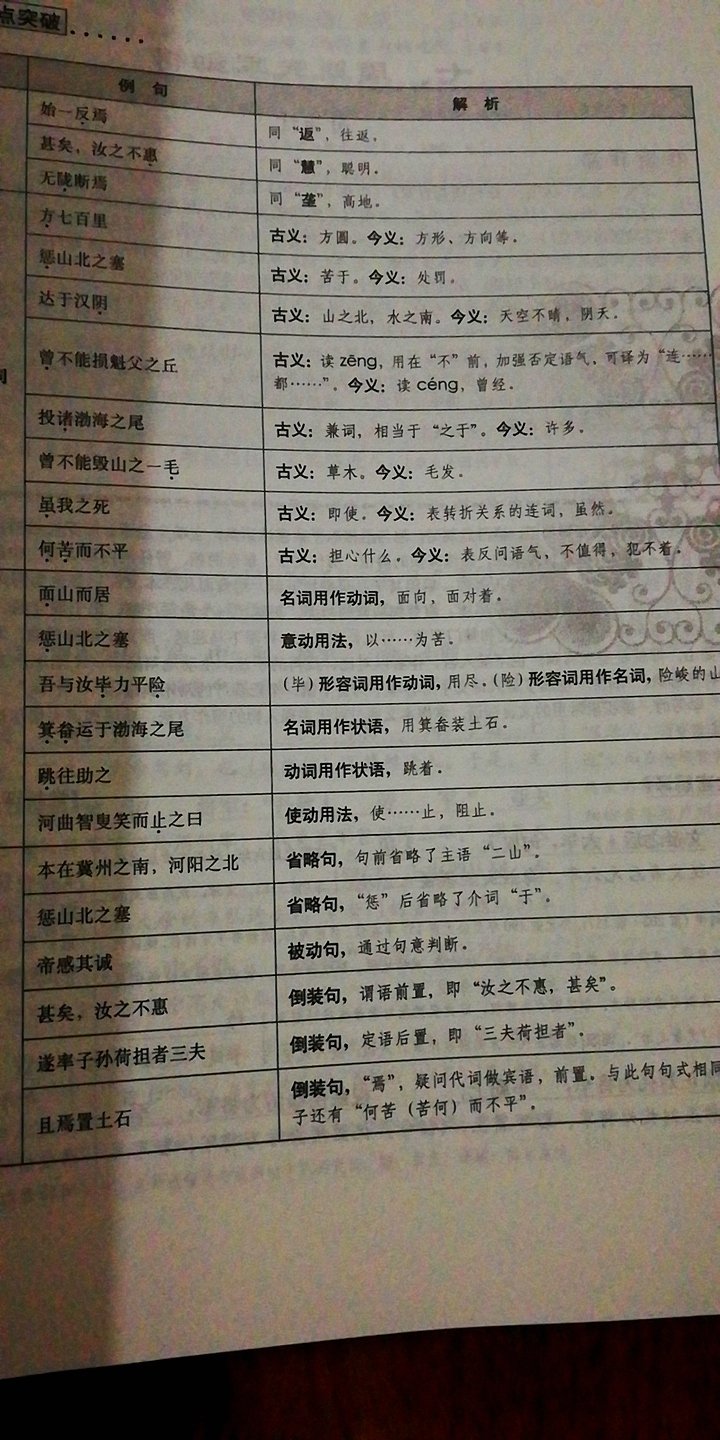 点突破
例 句 解 析
始一反焉 同“返”，往返。
甚矣，汝之不惠 同“慧”，聪明。
无陇断焉 同“垄”，高地。
方七百里 古义：方圆。今义：方形、方向等。
惩山北之塞 古义：苦于。今义：处罚。
达于汉阴 古义：山之北，水之南。今义：天空不晴，阴天。
曾不能损魁父之丘 古义：读 zēng，用在“不”前，加强否定语气，可译为“连……
都……”。今义：读 céng，曾经。
投诸渤海之尾 古义：兼词，相当于“之于”。今义：许多。
曾不能毁山之一毛 古义：草木。今义：毛发。
虽我之死 古义：即使。今义：表转折关系的连词，虽然。
何苦而不平 古义：担心什么。今义：表反问语气，不值得，犯不着。
面山而居 名词用作动词，面向，面对着。
惩山北之塞 意动用法，以……为苦。
吾与汝毕力平险 （毕）形容词用作动词，用尽。（险）形容词用作名词，险峻的山
箕畚运于渤海之尾 名词用作状语，用箕畚装土石。
跳往助之 动词用作状语，跳着。
河曲智叟笑而止之曰 使动用法，使……止，阻止。
本在冀州之南，河阳之北 省略句，句前省略了主语“二山”。
惩山北之塞 省略句，“惩”后省略了介词“于”。
帝感其诚 被动句，通过句意判断。
甚矣，汝之不惠 倒装句，谓语前置，即“汝之不惠，甚矣”。
遂率子孙荷担者三夫 倒装句，定语后置，即“三夫荷担者”。
且焉置土石 倒装句，“焉”，疑问代词做宾语，前置。与此句句式相同
子还有“何苦（苦何）而不平”。